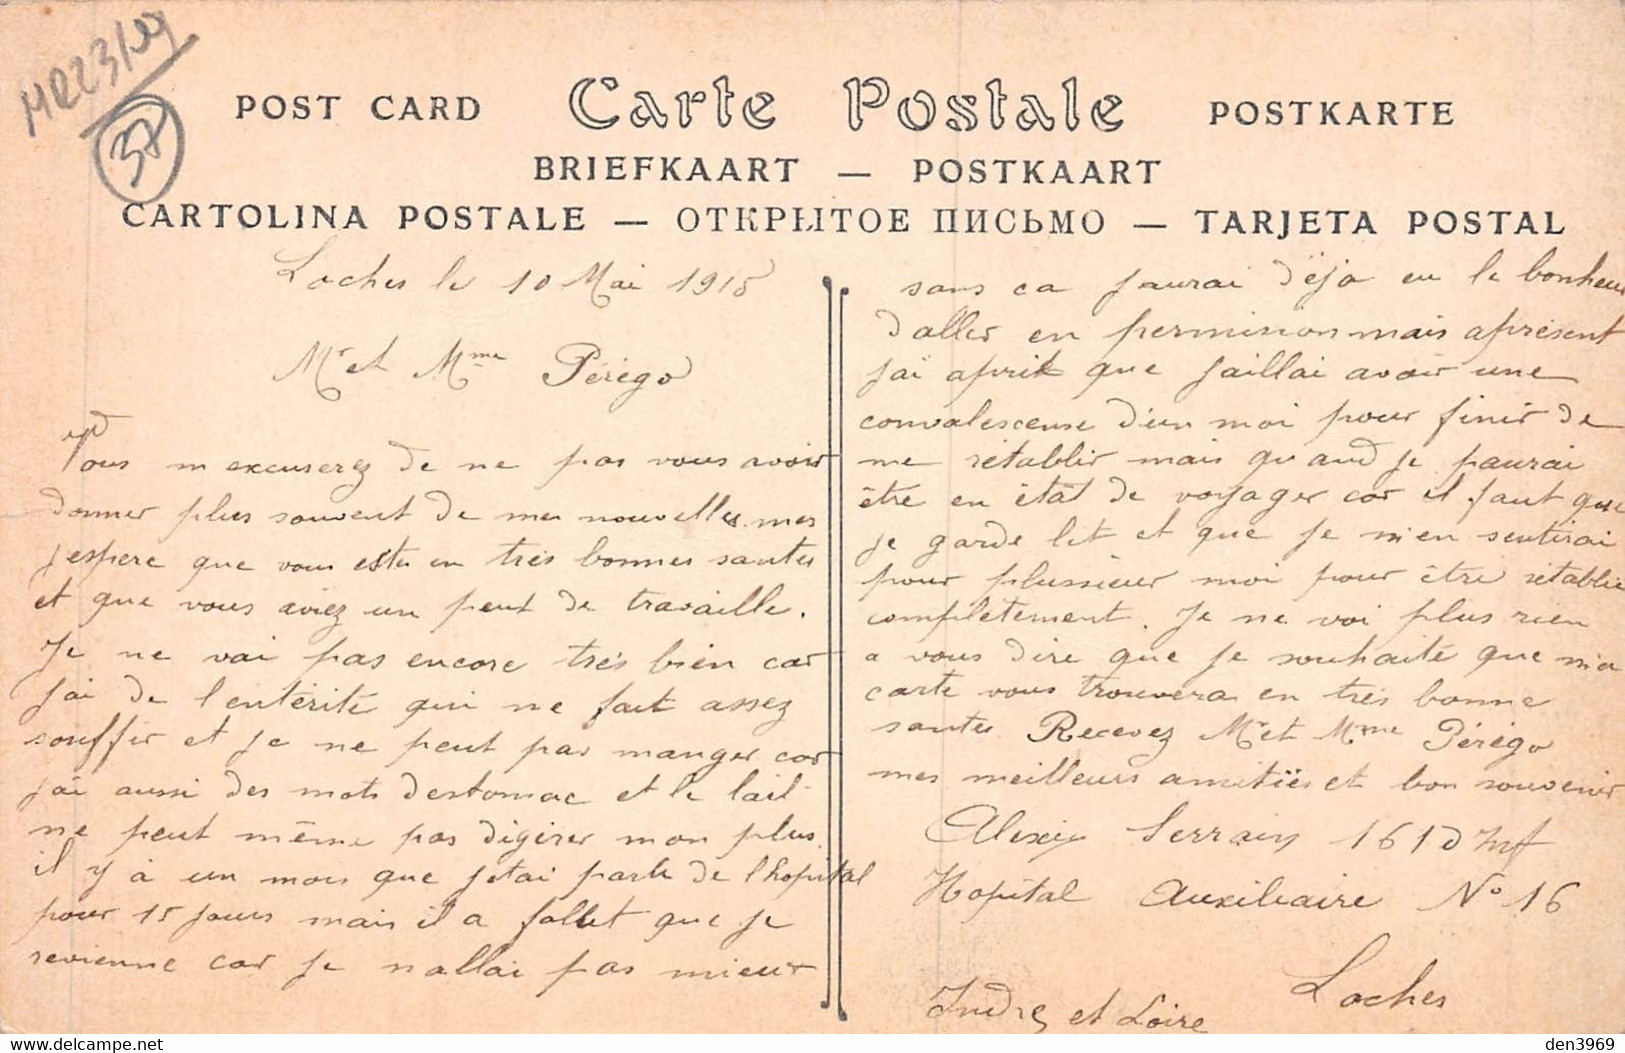 37
POST CARD Carte Postale POSTKARTE
BRIEFKAART — POSTKAART
CARTOLINA POSTALE — ОТКРЫТОЕ ПИСЬМО — TARJETA POSTAL
Loches le 10 Mai 1915
Mr et Mme Pérégo
Vous m excuserez de ne pas vous avoir
donner plus souvent de mes nouvelles mes
jespere que vous estes en tres bonnes santes
et que vous aviez un peut de travaille.
Je ne vai pas encore trés bien car
jai de l entérité qui ne fait assez
souffir et je ne peut pas manger car
jai aussi des mots destomac et le lait
ne peut même pas digirer mon plus.
il y à un mois que jetai parte de l hopital
pour 15 jours mais il a fallut que je
revienne car je n allai pas mieux
sans ca jaurai déja eu le bonheur
daller en permission mais apresent
jai aprit que jaillai avoir une
convalescense d'un moi pour finir de
me rétablir mais quand je paurai
être en état de voyager car il faut que
je garde lit et que je m'en sentirai
pour plussieur moi pour être rétablie
completement. Je ne voi plus rien
a vous dire que je souhaité que ma
carte vous trouvera en trés bonne
santes Recevez Mr et Mme Pérégo
mes meilleurs amitiés et bon souvenir
Alexis Serrain 161 D Inf
Hopital Auxiliaire No 16
Loches
Indre et Loire
den3969